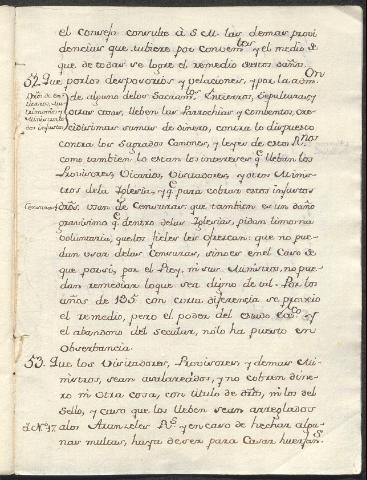 el Consejo consulte à S. M. las demas provi
dencias que tubiere por combenᵗᵉˢ y el medio de
que de todas se logre el remedio destos daños.
52. Que por los desposorios y velaciones, y por la adm.ᵒⁿ
de alguno delos Sacramᵗᵒˢ Entierros, Sepulturas y
otras cosas, lleben las Parrochias y combentos, cre
cidissimas sumas de dinero, contra lo dispuesto
contra los Sagrados Canones, y leyes de estos R.ⁿᵒˢ
como tambien lo estan los intereses q.ᵉ lleban los
Provisores, Vicarios, Visitadores, y otros Minis
tros dela Iglesia, y q.ᵉ para cobrar estos injustos
Censuras
dros. usan de Censuras: que tambien es un daño
gravissimo q.ᵉ dentro delas Iglesias, pidan limosna
voluntaria, que los fieles les ofrescan: que no pue
dan usar delas Censuras, sino es en el Caso de
que por si, por el Rey, ni sus Ministros, no pue
dan remediar loque sea digno de tal. Por los
años de 135 con corta diferencia se proveio
el remedio, pero el poder del estado Ecc.ᶜᵒ y
el abandono del secular, nolo ha puesto en
Observancia.
53. Que los Visitadores, Provisores, y demas Mi
nistros, sean asalareados, y no cobren dine
ro ni otra cosa, con titulo de dros, ni los del
sello, y caso que los lleben sean arreglados
alos Aranzeles R.ˢ y en caso de hechar algu
nas multas, haya de ser para Casar huerfan.ˢ